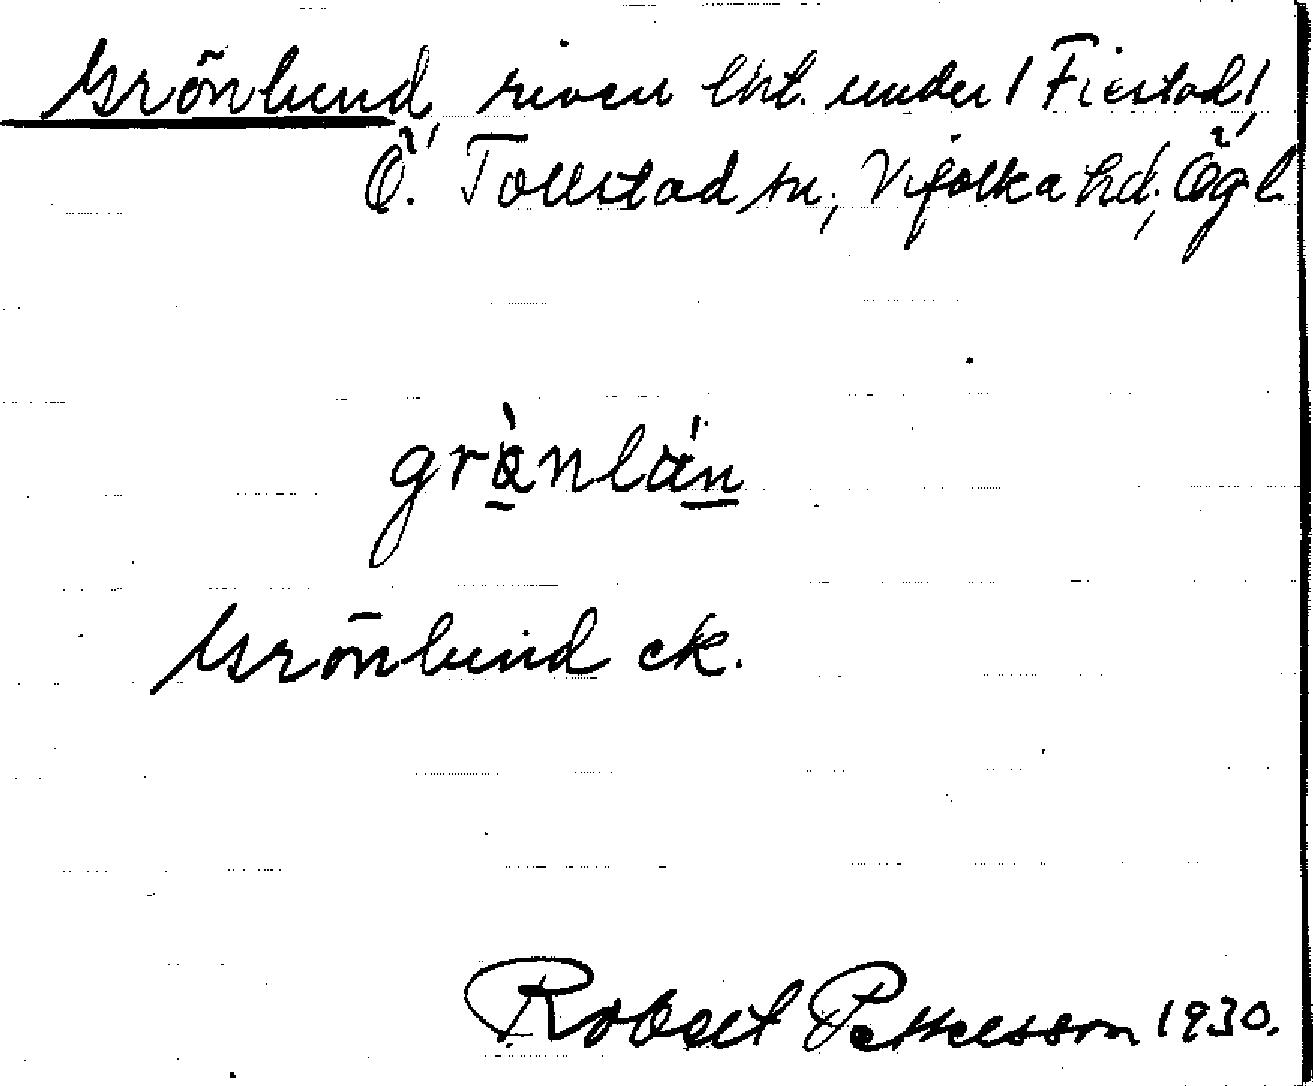 Grönlund, riven lht. under / Fiestad /,
Ö. Tollstad sn, Vifolka hd, Ögl.
grànlán
Grönlund ek.
Robert Pettersson 1930.